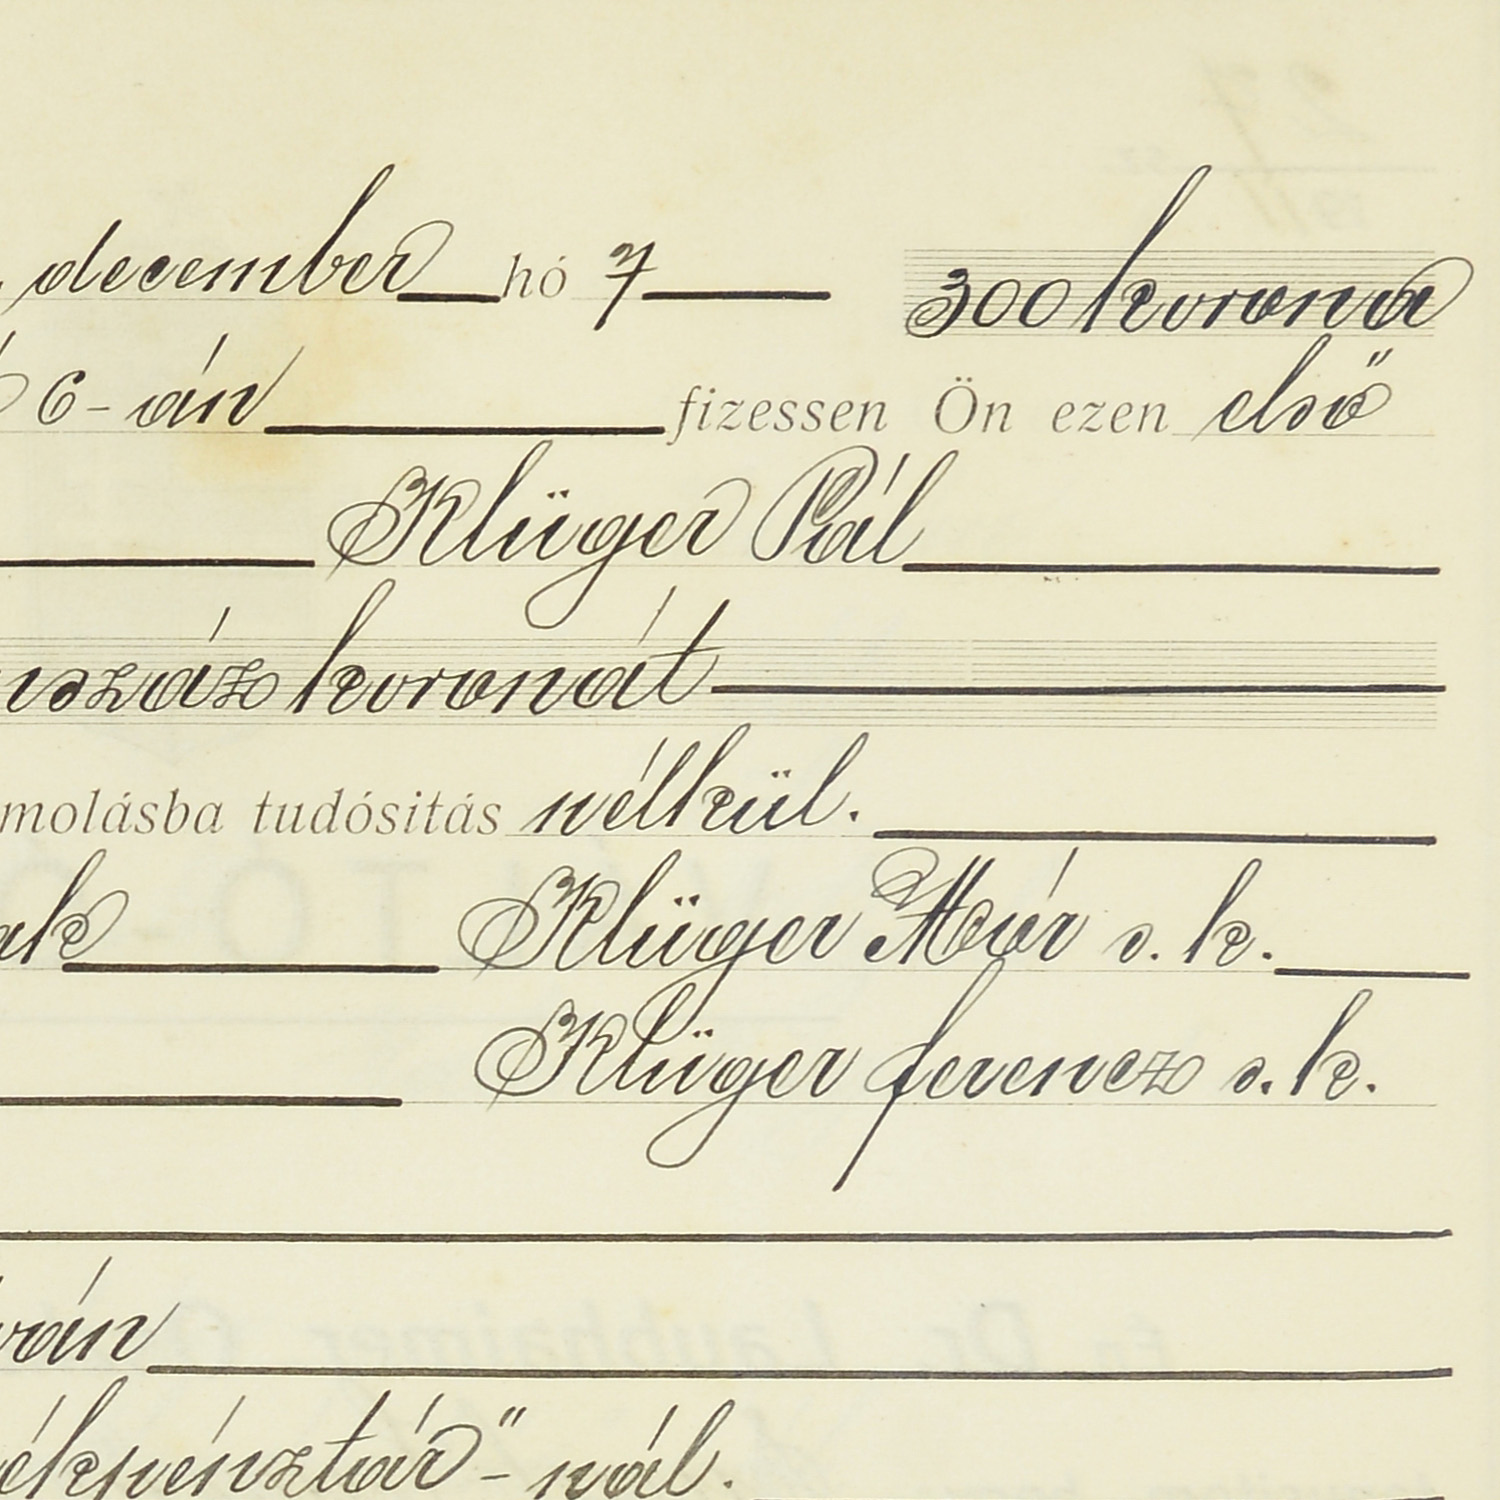 december hó 7 300 korona
6-án fizessen Ön ezen első
Klüger Pál
száz koronát
molásba tudósitás nélkül.
ak Klüger Mór s. k.
Klüger ferencz s. k.
ván
ékpénztár"-nál.